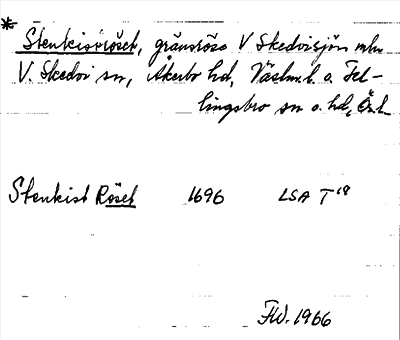 * Stenkiströset, gränsröse V Skedvisjön mln
V. Skedvi sn, Åkerbo hd, Västm.l. o. Fel-
lingsbro sn o. hd, Ör.l.
Stenkist Röset 1696 LSA T 18
FW. 1966